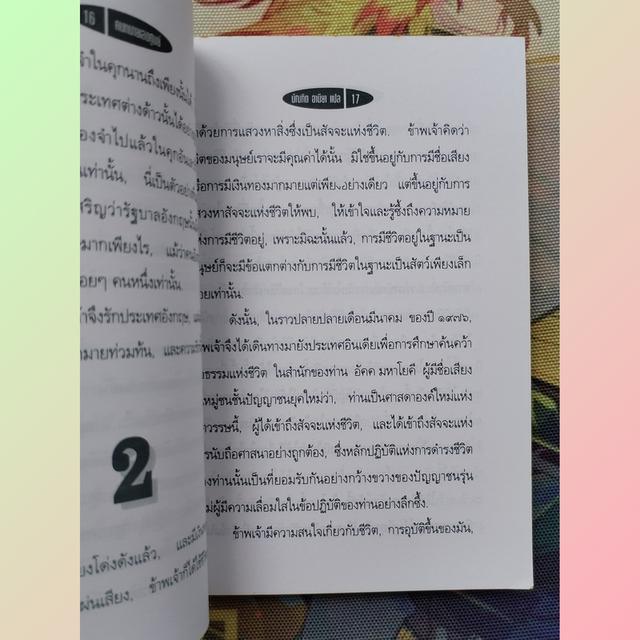 16
ในคุกนานถึงเพียงนั้นได้
ประเทศต่างด้าวนั้นได้
องจำไปแล้วในคุกอัน
เท่านั้น, นี่เป็นตัวอย่าง
สริญว่ารัฐบาลอังกฤษนั้น
มากเพียงไร, แม้ว่าคน
อยๆ คนหนึ่งเท่านั้น.
จึงรักประเทศอังกฤษ, แ
มายท่วมท้น, และความ
2
ยงโด่งดังแล้ว, และมีเงิน
ผ่นเสียง, ข้าพเจ้าก็ได้ใช้
บัณฑิต อานียา แปล 17
ด้วยการแสวงหาสิ่งซึ่งเป็นสัจจะแห่งชีวิต. ข้าพเจ้าคิดว่า
ตของมนุษย์เราจะมีคุณค่าได้นั้น มิใช่ขึ้นอยู่กับการมีชื่อเสียง
รือการมีเงินทองมากมายแต่เพียงอย่างเดียว แต่ขึ้นอยู่กับการ
สวงหาสัจจะแห่งชีวิตให้พบ, ให้เข้าใจและรู้ซึ้งถึงความหมาย
ห่งการมีชีวิตอยู่, เพราะมิฉะนั้นแล้ว, การมีชีวิตอยู่ในฐานะเป็น
นุษย์ก็จะมีข้อแตกต่างกับการมีชีวิตในฐานะเป็นสัตว์เพียงเล็ก
อยเท่านั้น.
ดังนั้น, ในราวปลายปลายเดือนมีนาคม ของปี ๑๙๗๖,
าพเจ้าจึงได้เดินทางมายังประเทศอินเดียเพื่อการศึกษาค้นคว้า
ธรรมแห่งชีวิต ในสำนักของท่าน อัคค มหาโยคี ผู้มีชื่อเสียง
หมู่ชนชั้นปัญญาชนยุคใหม่ว่า, ท่านเป็นศาสดาองค์ใหม่แห่ง
วรรษนี้, ผู้ได้เข้าถึงสัจจะแห่งชีวิต, และได้เข้าถึงสัจจะแห่ง
ารนับถือศาสนาอย่างถูกต้อง, ซึ่งหลักปฏิบัติแห่งการดำรงชีวิต
องท่านนั้นเป็นที่ยอมรับกันอย่างกว้างขวางของปัญญาชนรุ่น
ม่ผู้มีความเลื่อมใสในข้อปฏิบัติของท่านอย่างลึกซึ้ง.
ข้าพเจ้ามีความสนใจเกี่ยวกับชีวิต, การอุบัติขึ้นของมัน,